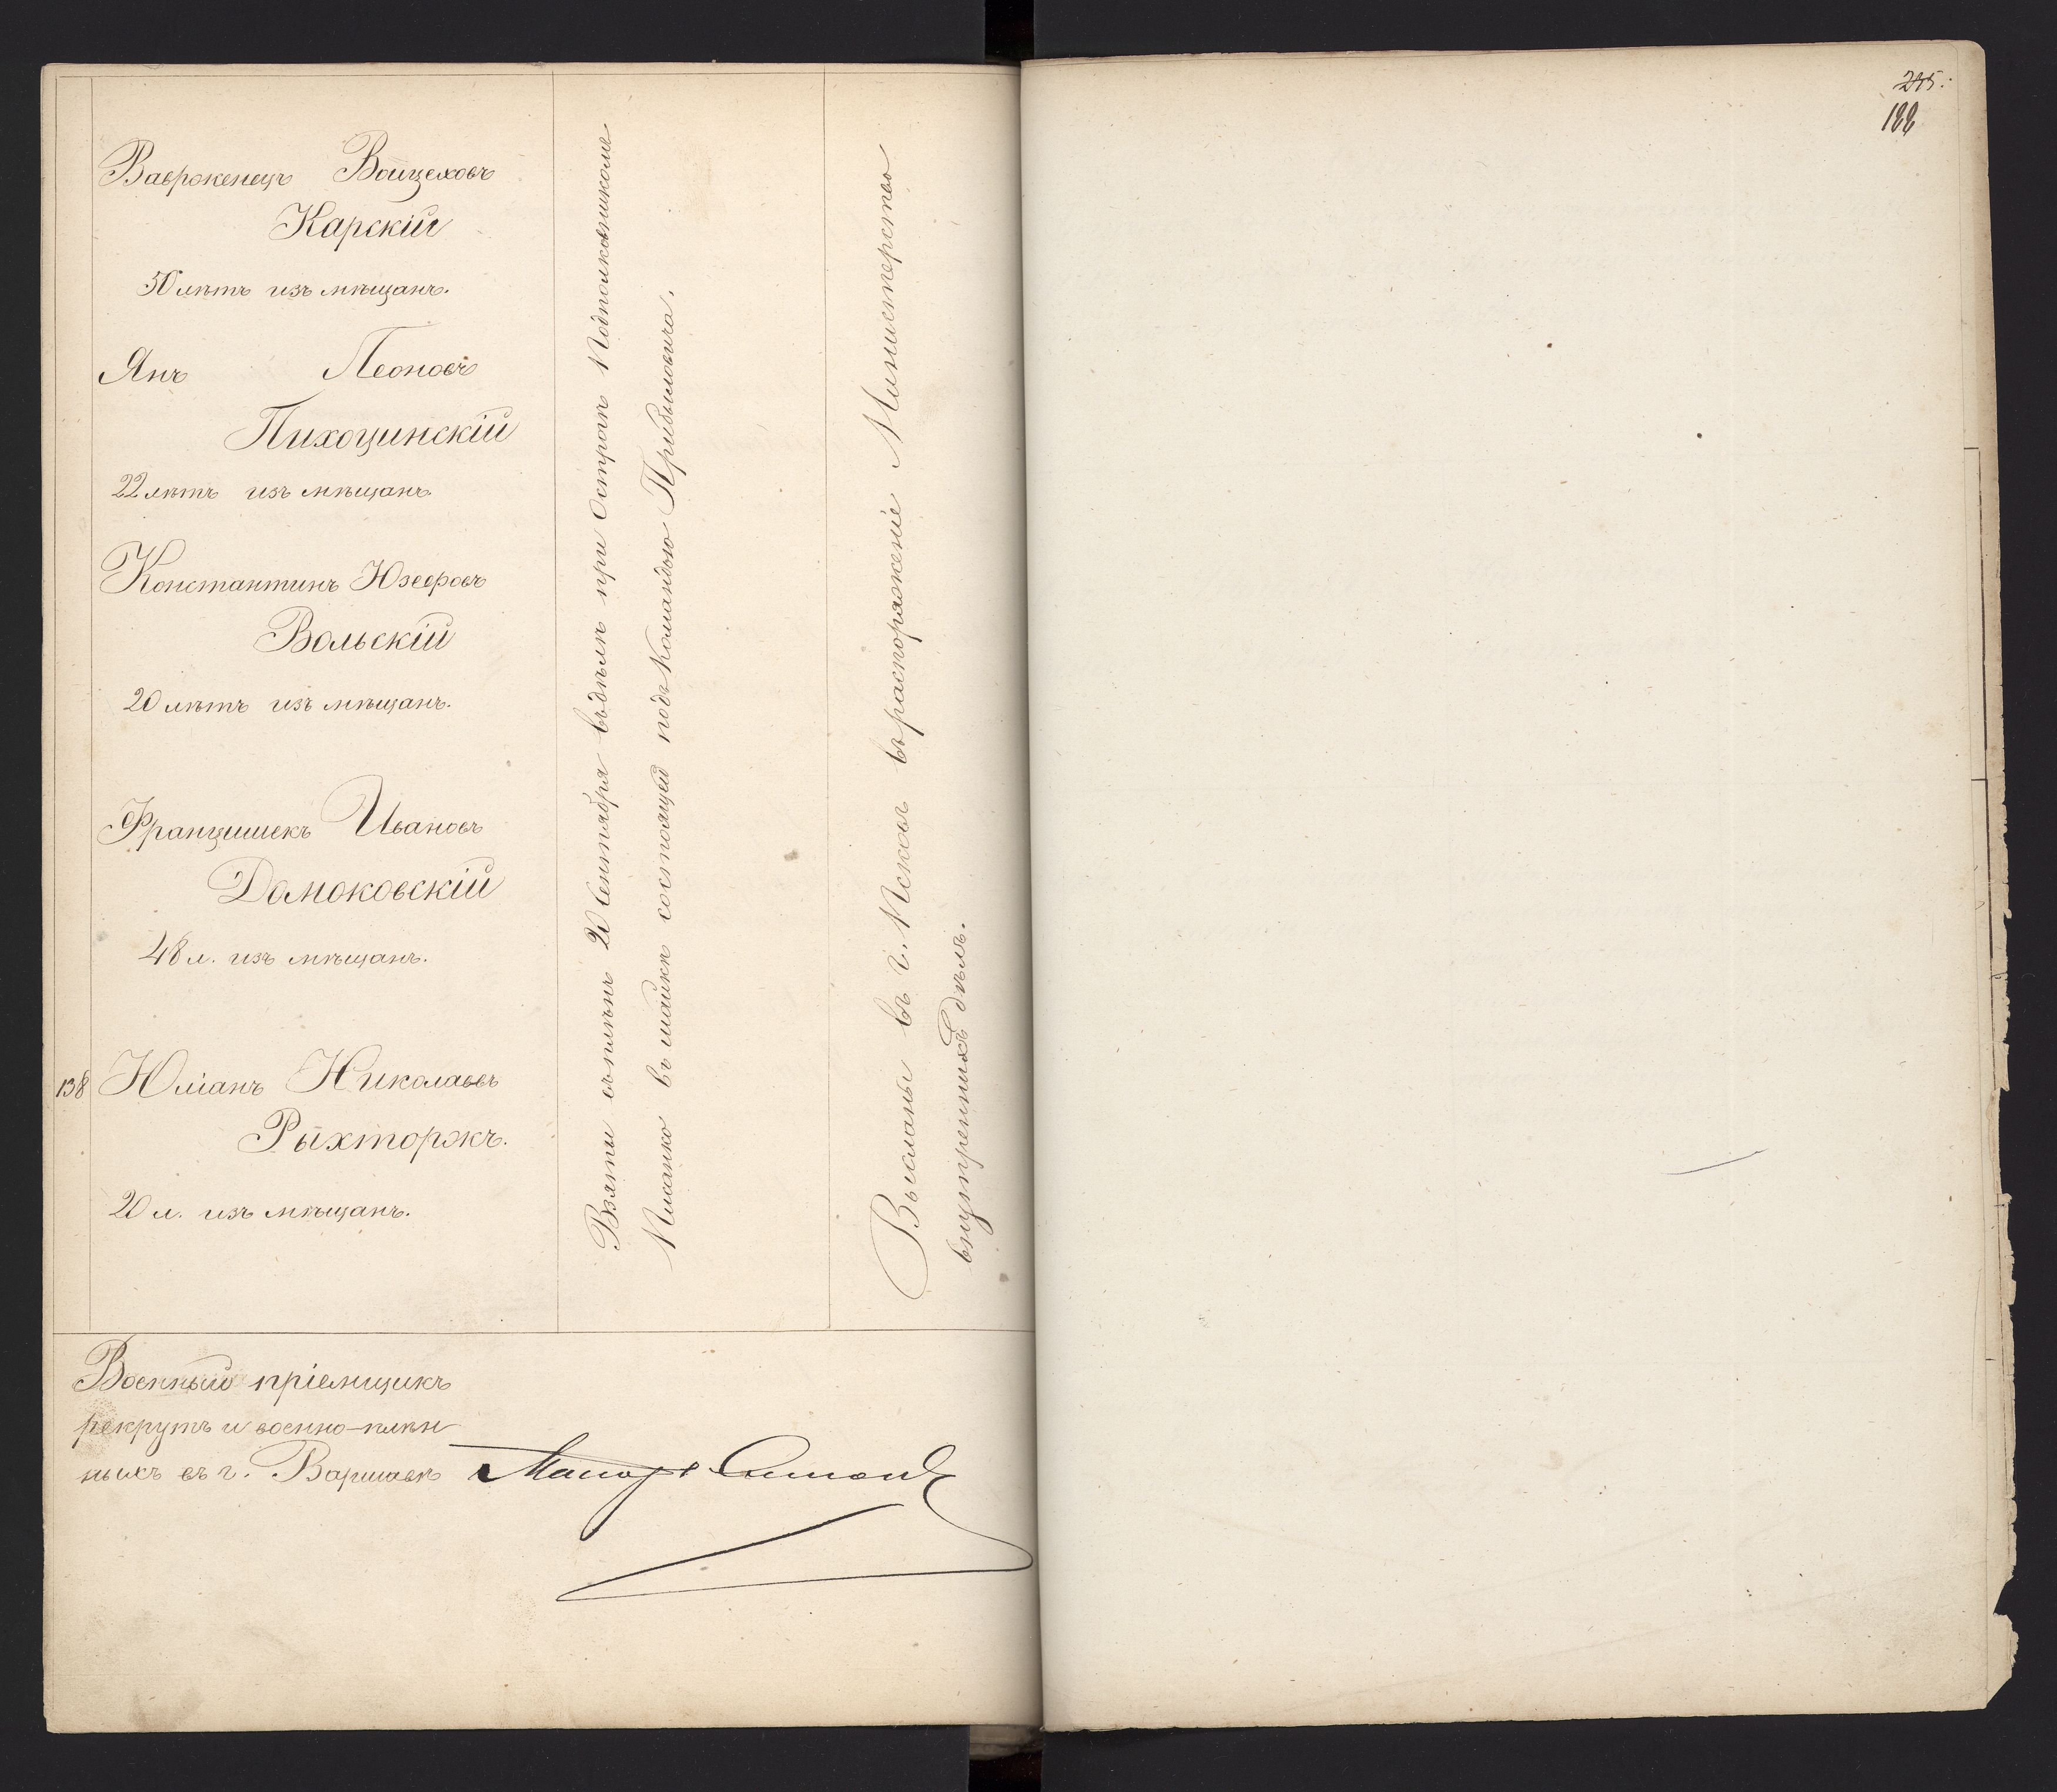 Ваврженецъ Войцеховъ
Карскій
50 лѣтъ изъ мѣщанъ.
Янъ Леоновъ
Пихоцинскій
22 лѣтъ изъ мѣщанъ
Константинъ Юзефовъ
Вольскій
20 лѣтъ изъ мѣщанъ.
Францишекъ Ивановъ
Домоковскій
48 л. изъ мѣщанъ.
138 Юліанъ Николаевъ
Рыхторжъ.
20 л. изъ мѣщанъ.
Взяты въ плѣнъ 20 Сентября въ дѣлѣ при Подполковникомъ
въ шайкѣ состоящей подъ Командою
Высланы въ г. Псковъ въ распоряженіе Министерство
внутреннихъ дѣлъ.
Военный пріемщикъ
рекрутъ и военно-плѣн
ныхъ въ г. Варшавѣ Маіоръ
245.
188